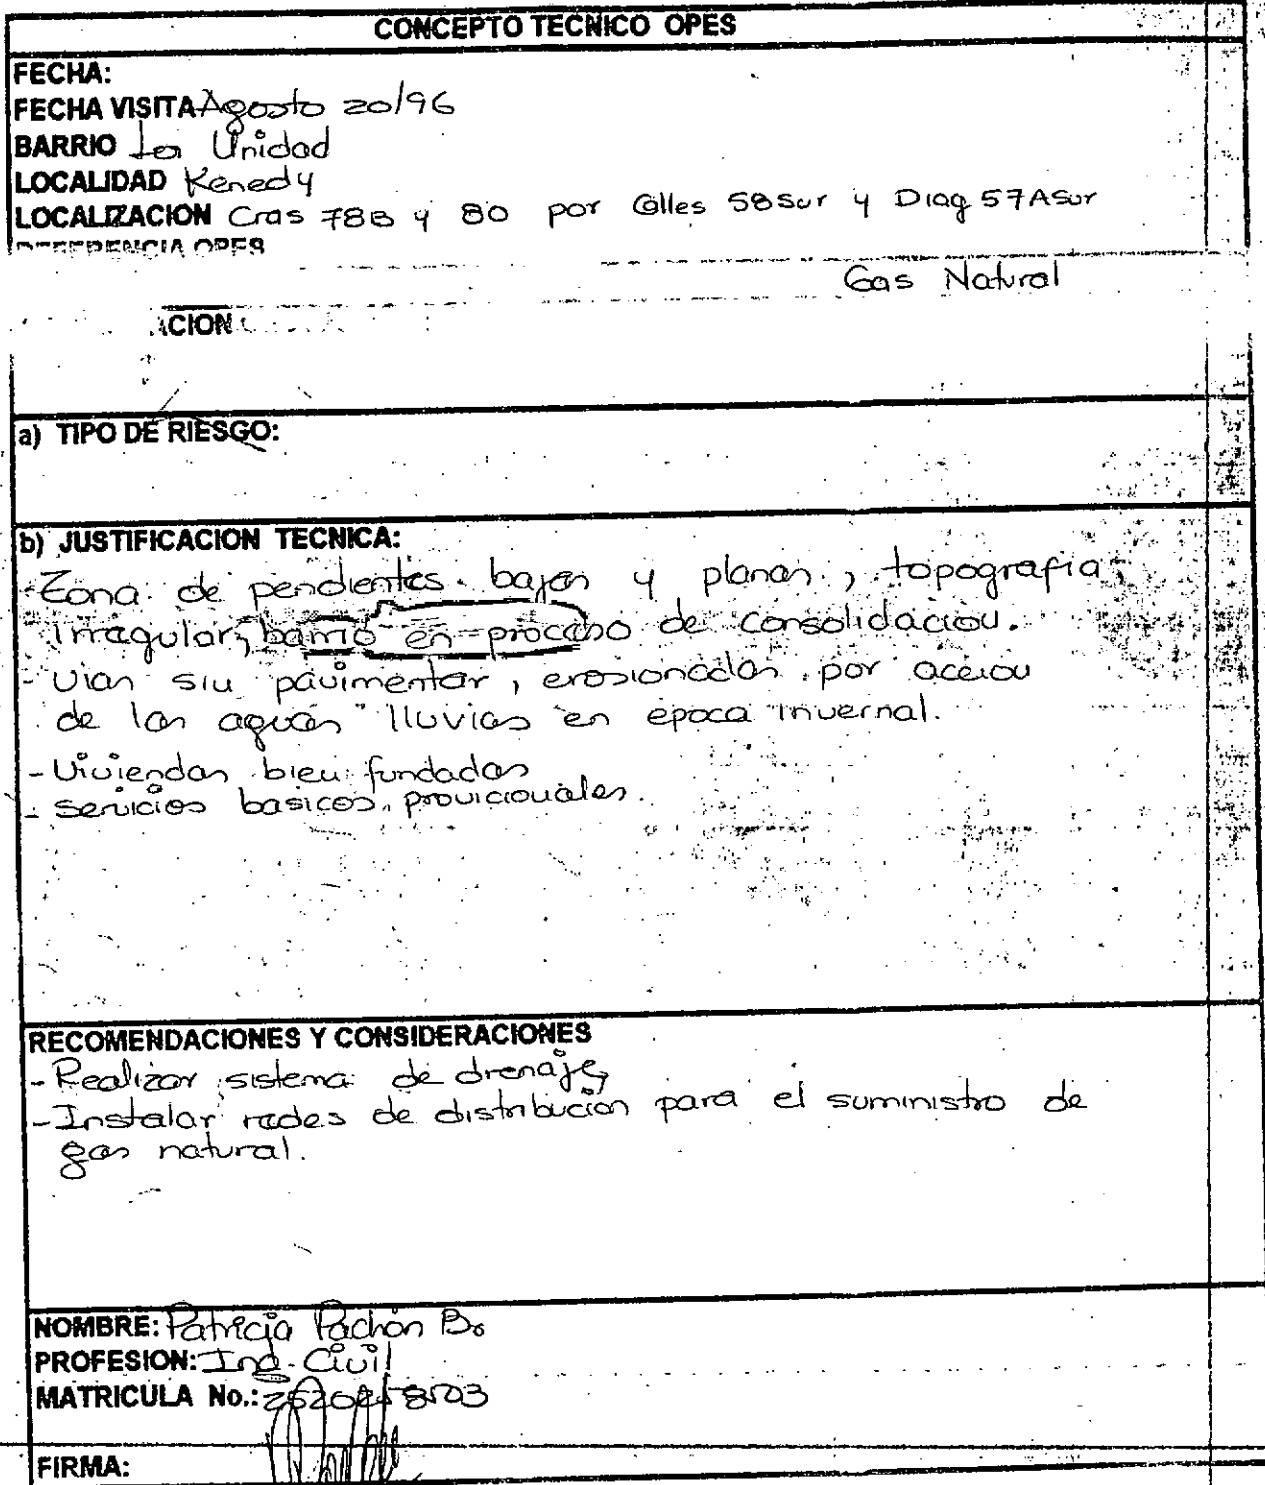 CONCEPTO TECNICO OPES
FECHA:
FECHA VISITA Agosto 20/96
BARRIO La Unidad
LOCALIDAD Kenedy
LOCALIZACION Cras 78B y 80 por Calles 58 Sur y Diag 57A Sur
REFERENCIA OPES
Gas Natural
ACION
a) TIPO DE RIESGO:
b) JUSTIFICACION TECNICA:
- Zona de pendientes bajas y planas, topografia
irregular, barrio en proceso de consolidacion.
- Vias sin pavimentar, erosionadas por accion
de las aguas lluvias en epoca invernal.
- Viviendas bien fundadas
- servicios basicos provicionales.
RECOMENDACIONES Y CONSIDERACIONES
- Realizar sistema de drenaje,
- Instalar redes de distribucion para el suministro de
gas natural.
NOMBRE: Patricia Pachón B.
PROFESION: Ing. Civil
MATRICULA No.:
FIRMA: